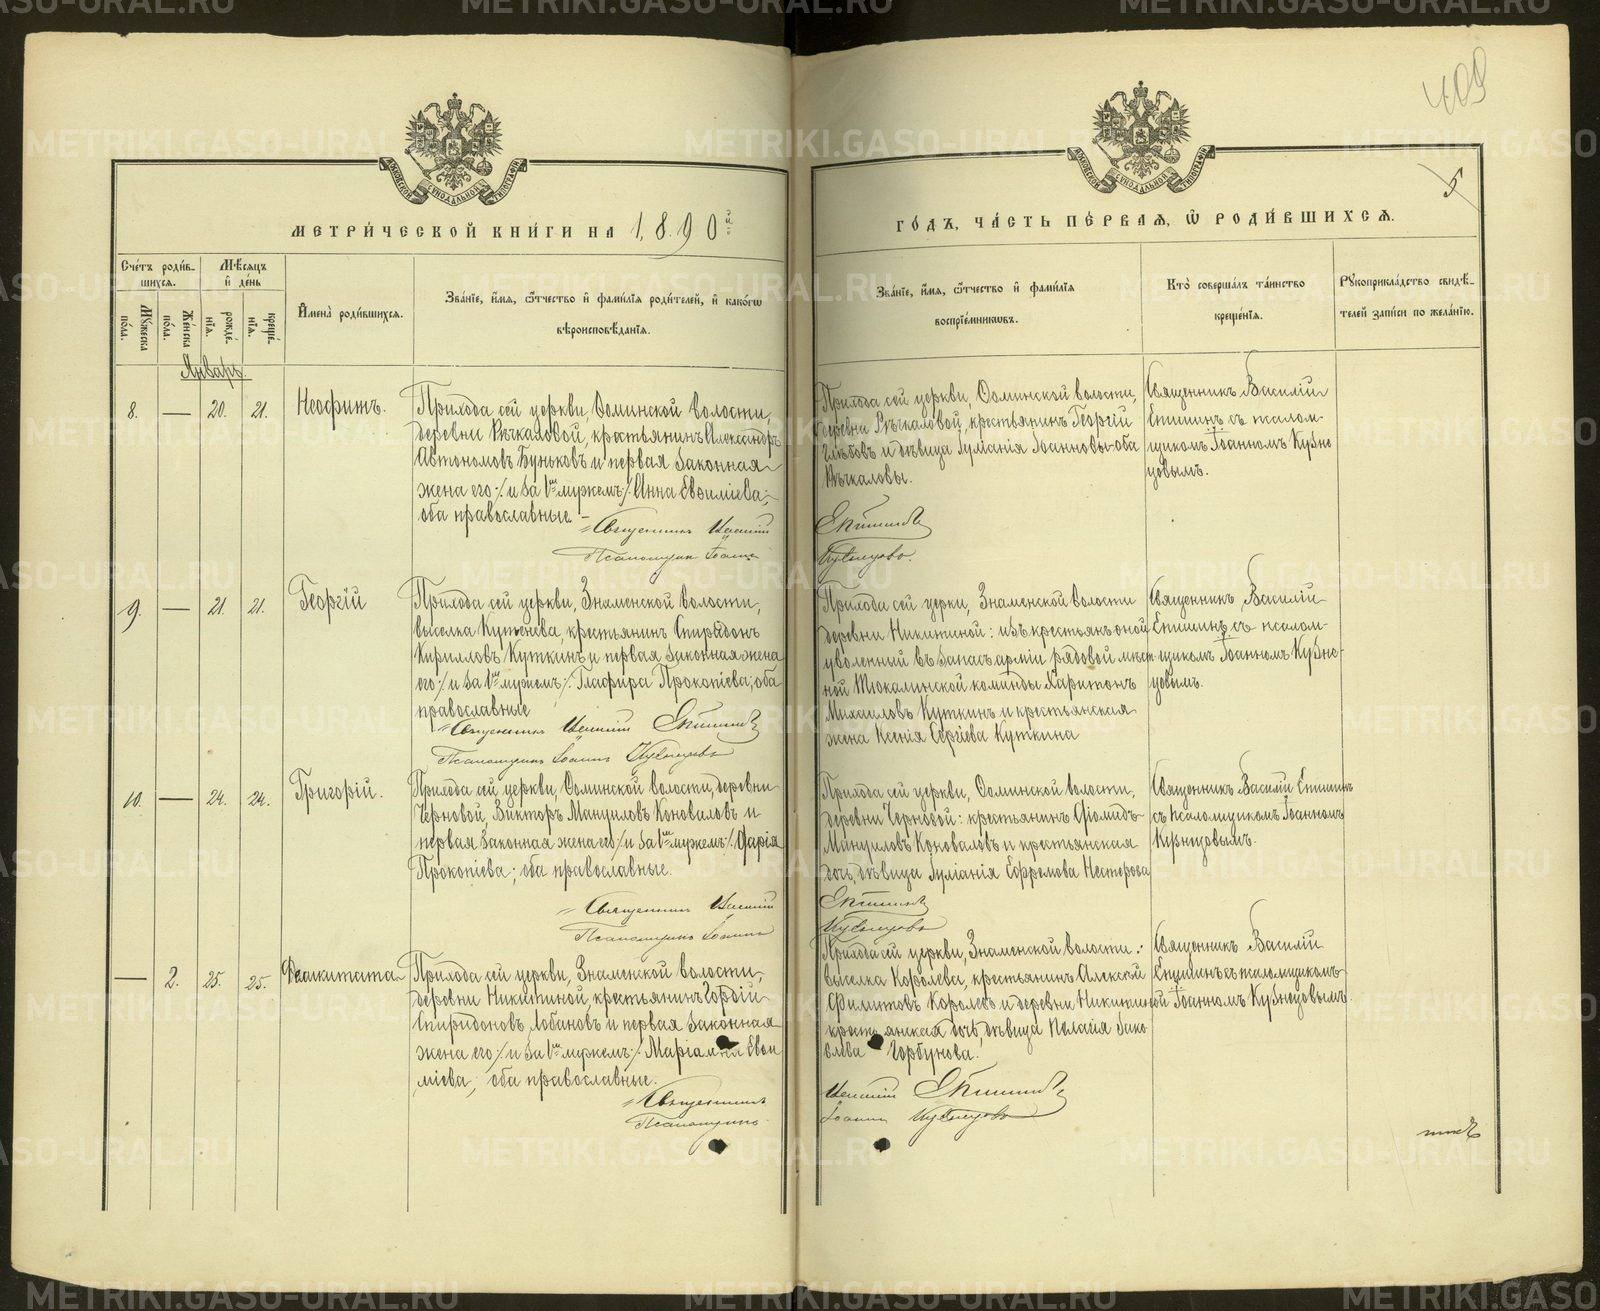 409
5
МЕТРИ́ЧЕСКОЙ КНИ́ГИ НА 1890 й
ГО́ДЪ, ЧА́СТЬ ПЕ́РВАЯ, Ѿ РОДИ́ВШИХСЯ.
Сче́тъ роди́в-
шихся.
Мѣ́сяцъ
и҆ де́нь
Мꙋжеска
по́ла.
Же́нска
по́ла.
рожде́-
нїя.
креще́-
нїя.
И҆мена̀ роди́вшихся.
Зва́нїе, и҆́мя, ѻ҆́тчество и҆ фами́лїя роди́телей, и҆ како́гѡ
вѣроисповѣ́данїя.
Зва́нїе, и҆́мя, ѻ҆́тчество и҆ фами́лїя
воспрїе́мникѡвъ.
Кто̀ соверша́лъ та́инство
креще́нїя.
Рꙋкоприкла́дство свидѣ́-
телей за́писи по жела́нїю.
Январь.
8. — 20. 21. Неофитъ.
Прихода сей церкви, Ѳоминской волости,
деревни Рѣчкаловой, крестьянинъ Александръ
Автономовъ Буньковъ и первая законная
жена его :/ и за 1мъ мужемъ :/ Анна Евѳиміева;
оба православные.
Священникъ Василій
Псаломщикъ Іоаннъ
Прихода сей церкви, Ѳоминской волости,
деревни Рѣчкаловой, крестьянинъ Георгій
Глѣбовъ и дѣвица Іуліанія Іоанновы оба
Рѣчкаловы.
Епишинъ
Кузнецовъ.
Священникъ Василій
Епишинъ съ псалом-
щикомъ Іоанномъ Кузне
цовымъ.
9. — 21. 21. Георгій
Прихода сей церкви, Знаменской волости,
выселка Кутенева, крестьянинъ Спиридонъ
Кирилловъ Куткинъ и первая законная жена
его :/ и за 1мъ мужемъ :/. Глафира Прокопіева; оба
православные
Священникъ Василій Епишинъ
Псаломщикъ Іоаннъ Кузнецовъ
Прихода сей церки, Знаменской волости
деревни Никитиной: изъ крестьянъ оной
уволенный въ запасъ арміи рядовой мѣст-
ной Тюкалинской команды Харитонъ
Михаиловъ Куткинъ и крестьянская
жена Ксенія Сергіева Куткина
Священникъ Василій
Епишинъ съ псалом-
щикомъ Іоанномъ Кузне-
цовымъ.
10. — 24. 24. Григорій.
Прихода сей церкви, Ѳоминской волости, деревни
Черновой, Викторъ Мануиловъ Коноваловъ и
первая законная жена его :/ и за 1мъ мужемъ :/ Дарія
Прокопіева; оба православные.
Священникъ Василій
Псаломщикъ Іоаннъ
Прихода сей церкви, Ѳоминской волости,
деревни Черновой: крестьянинъ Діомидъ
Мануиловъ Коноваловъ и крестьянская
дочь, дѣвица Іуліанія Ефремова Нестерова
Епишинъ
Кузнецовъ
Священникъ Василій Епишинъ
съ псаломщикомъ Іоанномъ
Кузнецовымъ.
— 2. 25. 25.
Прихода сей церкви, Знаменской волости,
деревни Никитиной, крестьянинъ Гордій
Спиридоновъ Лобановъ и первая законная
жена его :/ и за 1мъ мужемъ :/ Маріамна Евѳи
міева; оба православные.
Священникъ
Псаломщикъ
Прихода сей церкви, Знаменской волости:
выселка Королева, крестьянинъ Алексѣй
Филитовъ Королевъ и деревни Никитиной
крестьянская дочь, дѣвица Пелагія Іако
влева Горбунова.
Василій Епишинъ
Іоаннъ Кузнецовъ
Священникъ Василій
Епишинъ съ псаломщикомъ
Іоанномъ Кузнецовымъ
METRIKI.GASO-URAL.RU